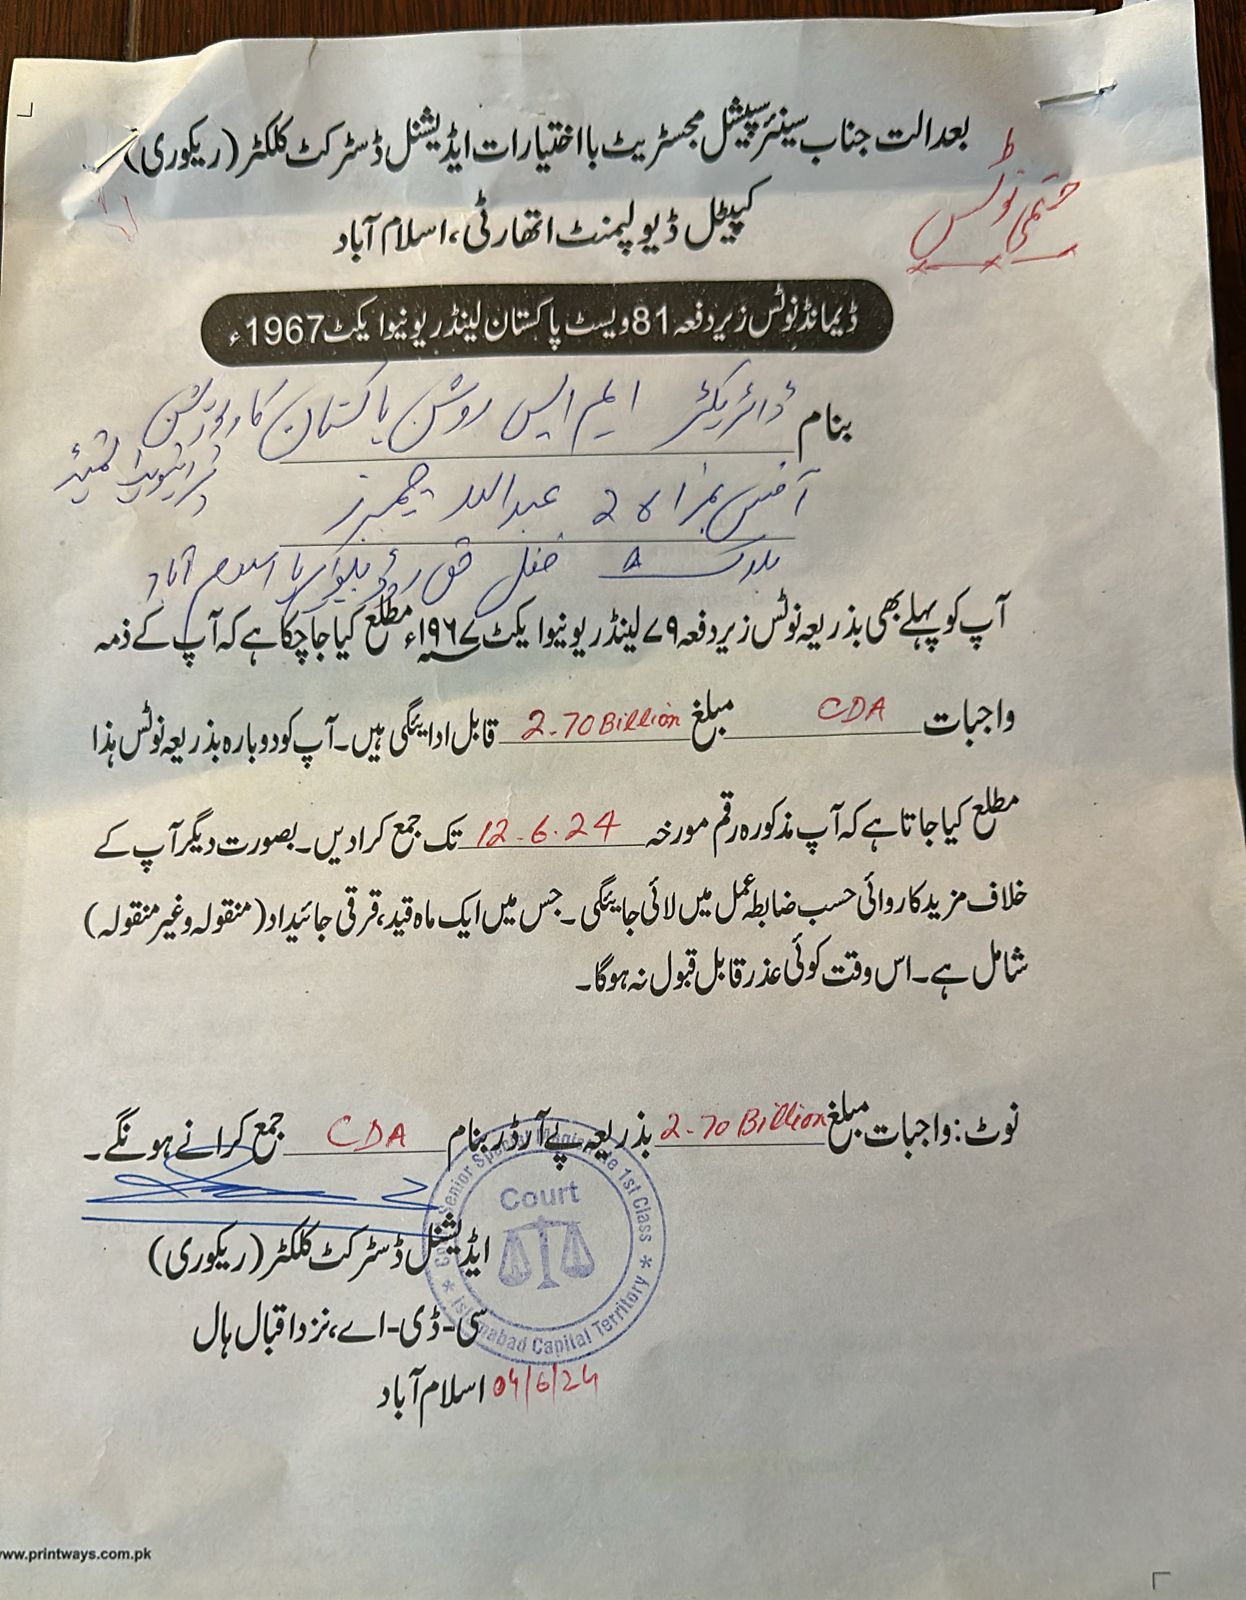 بعدالت جناب سینئر سپیشل مجسٹریٹ با اختیارات ایڈیشنل ڈسٹرکٹ کلکٹر (ریکوری)
کیپٹل ڈیولپمنٹ اتھارٹی، اسلام آباد
حتمی نوٹس
ڈیمانڈ نوٹس زیر دفعہ 81 ویسٹ پاکستان لینڈ ریونیو ایکٹ 1967ء
بنام ڈائریکٹر ایم ایس روشن پاکستان کارپوریشن
پرائیویٹ لمیٹڈ
آفس نمبر عبداللہ چیمبرز
بلاک A فضل حق روڈ بلیو ایریا اسلام آباد
آپ کو پہلے بھی بذریعہ نوٹس زیر دفعہ ۷۹ لینڈ ریونیو ایکٹ ۱۹۶۷ء مطلع کیا جا چکا ہے کہ آپ کے ذمہ
واجبات CDA مبلغ 2.70 Billion قابل ادائیگی ہیں۔ آپ کو دوبارہ بذریعہ نوٹس ہذا
مطلع کیا جاتا ہے کہ آپ مذکورہ رقم مورخہ 12.6.24 تک جمع کرا دیں۔ بصورت دیگر آپ کے
خلاف مزید کاروائی حسب ضابطہ عمل میں لائی جائیگی۔ جس میں ایک ماہ قید، قرقی جائیداد (منقولہ و غیر منقولہ)
شامل ہے۔ اس وقت کوئی عذر قابل قبول نہ ہوگا۔
نوٹ: واجبات مبلغ 2.70 Billion بذریعہ پے آرڈر بنام CDA جمع کرانے ہونگے۔
Senior Special Magistrate 1st Class
Court
Islamabad Capital Territory
ایڈیشنل ڈسٹرکٹ کلکٹر (ریکوری)
سی-ڈی-اے، نزد اقبال ہال
اسلام آباد 04/6/24
www.printways.com.pk